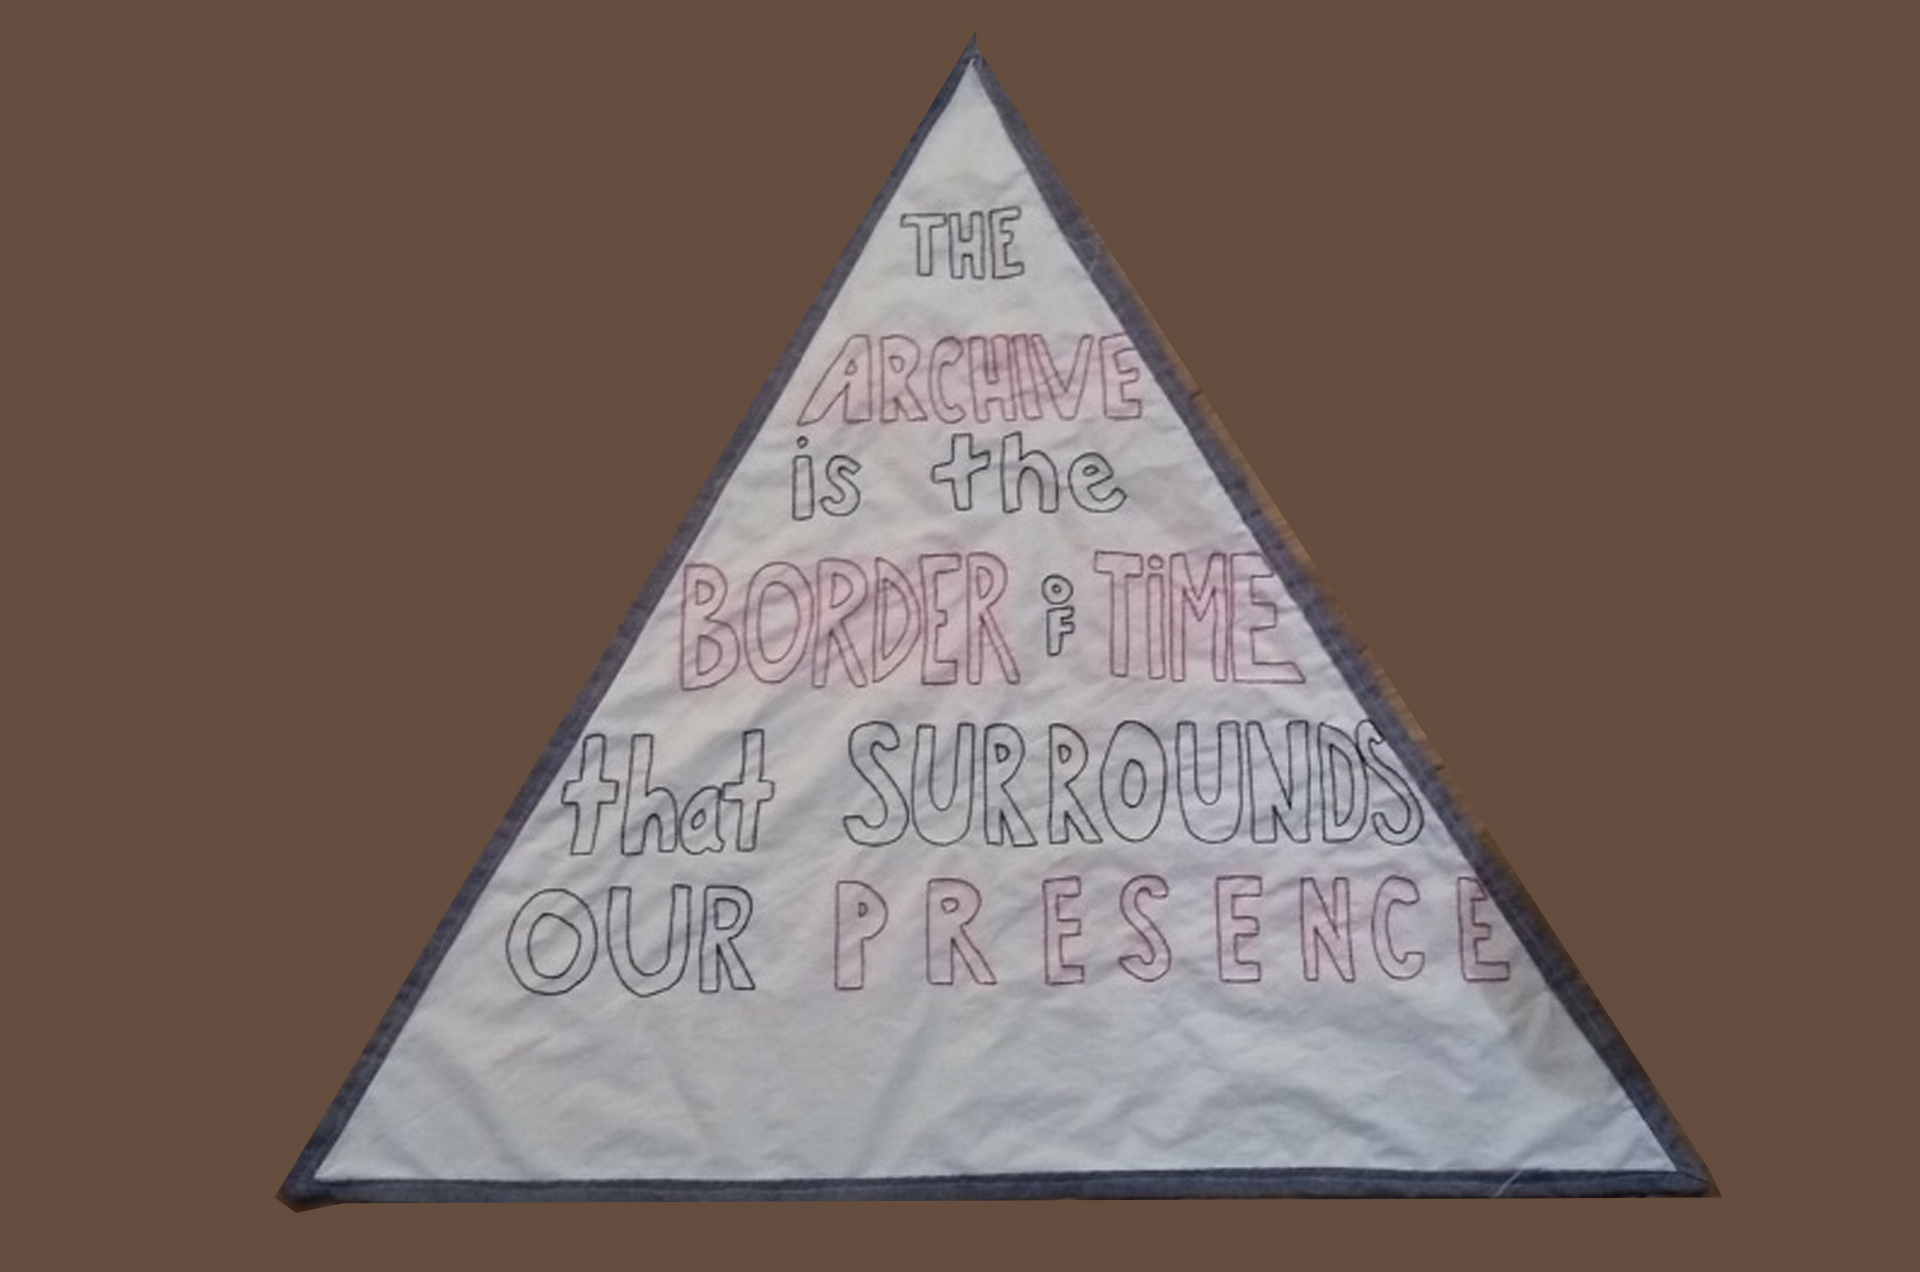 THE
ARCHIVE
is the
BORDER OF TiME
that SURROUNDS
OUR PRESENCE